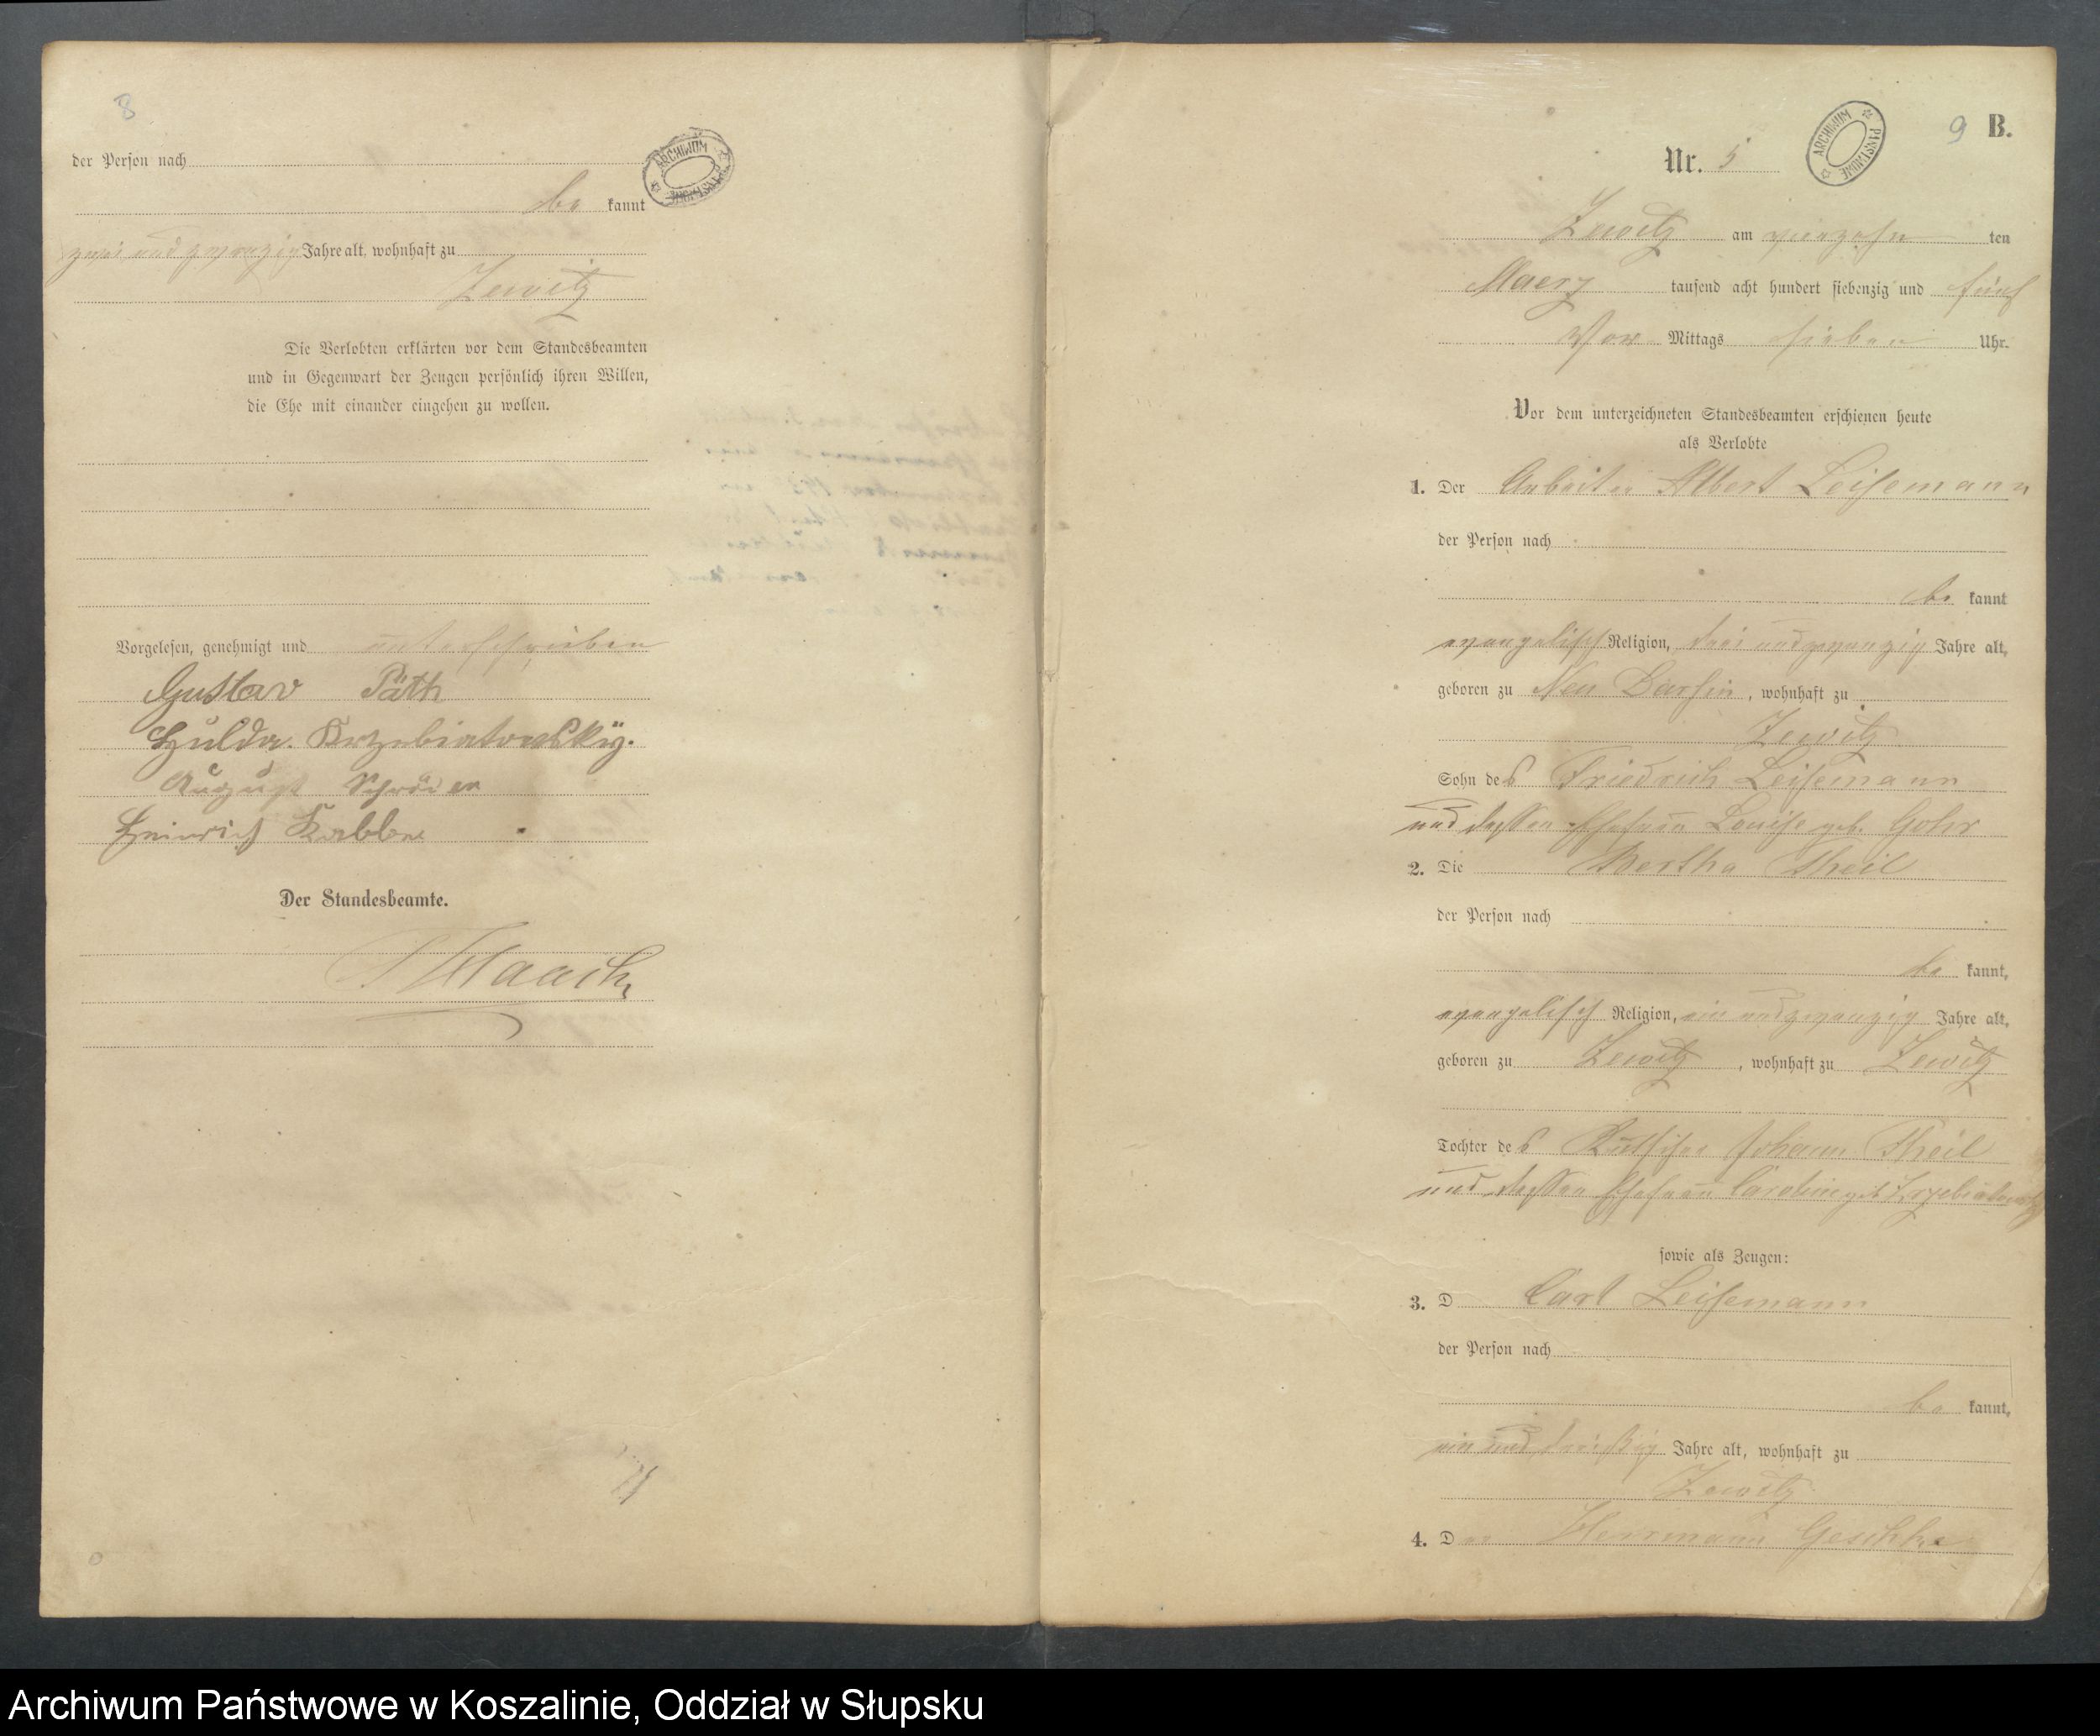 8
ARCHIWUM PAŃSTWOWE
der Person nach
be kannt
zwei und zwanzig Jahre alt, wohnhaft zu
Zewitz
Die Verlobten erklärten vor dem Standesbeamten
und in Gegenwart der Zeugen persönlich ihren Willen,
die Ehe mit einander eingehen zu wollen.
Vorgelesen, genehmigt und unterschrieben
Gustav Päth
Hulda Krzebiatowsky.
August
Heinrich
Der Standesbeamte.
9 B.
ARCHIWUM PAŃSTWOWE
Nr. 5
Zewitz am vierzehn ten
Maerz tausend acht hundert siebenzig und fünf
Vor Mittags sieben Uhr.
Vor dem unterzeichneten Standesbeamten erschienen heute
als Verlobte
1. Der Arbeiter Albert Leisemann
der Person nach
be kannt
evangelisch Religion, drei und zwanzig Jahre alt,
geboren zu Neu Darsin, wohnhaft zu
Zewitz
Sohn des Friedrich Leisemann
und dessen Ehefrau Louise geb. Gohr
2. Die Bertha Theil
der Person nach
be kannt,
evangelisch Religion, ein und zwanzig Jahre alt,
geboren zu Zewitz, wohnhaft zu Zewitz
Tochter des Johann Theil
und dessen Ehefrau Caroline geb.
sowie als Zeugen:
3. D Carl Leisemann
der Person nach
be kannt,
ein und dreißig Jahre alt, wohnhaft zu
Zewitz
4. Der Herrmann Geschke
Archiwum Państwowe w Koszalinie, Oddział w Słupsku